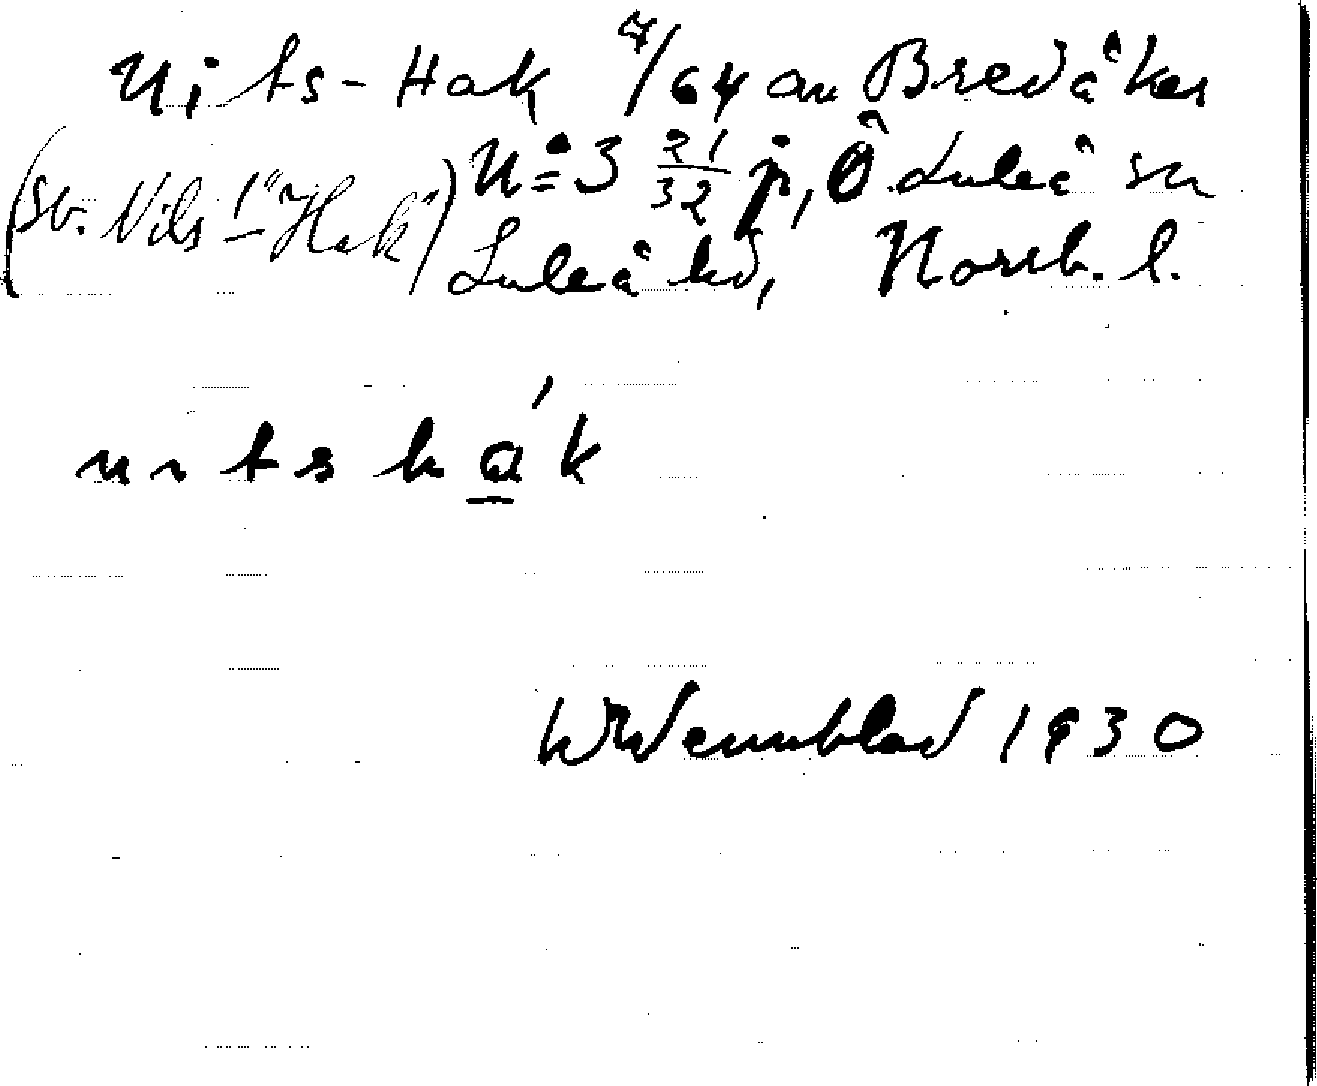 Nits-Hak 7/64 av Bredåker
(Sv. Nils-"Hak") N:o 3 21/32 j, Ö Luleå sn
Luleå hd, Norrb. l.
nitshák
W Wennblad 1930